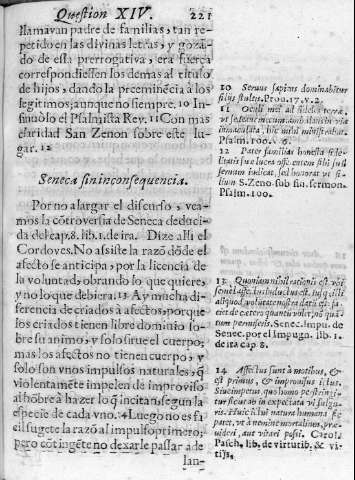 Question XIV. 221
llamavan padre de familias, tan re
petido en las divinas letras, y gozã
do de esta prerrogativa, era fuerça
correspondiessen los demas al titulo
de hijos, dando la preeminẽcia à los
legitimos; aunque no siempre. 10 In-
sinuòlo el Psalmista Rey. 11 Con mas
claridad San Zenon sobre este lu-
gar. 12
Seneca sin inconsequencia.
Por no alargar el discurso, vea-
mos la cõtroversia de Seneca deduci-
da del cap. 8. lib. 1. de ira. Dize alli el
Cordoves. No assiste la razõ dõde el
afecto se anticipa, y por la licencia de
la voluntad, obrando lo que quiere,
y no lo que debiera. 13 Ay mucha di-
ferencia de criados à afectos, porque
los criados tienen libre dominio so-
bre su animo, y solo sirve el cuerpo;
mas los afectos no tienen cuerpo, y
solo son vnos impulsos naturales, q̃
violentamẽte impelen de improviso
al hõbre à hazer lo q̃ incitan, segun la
especie de cada vno. 14 Luego no es fa
cil sugete la razõ al impulso primero;
pero cõtingẽte no dexarle passar ade
lan-
10 Servus sapiens dominabitur
filiis stultis. Prou. 17. v. 2.
11 Oculi mei ad fideles terræ,
vt sedeant mecum, ambulans in via
immaculata, hic mihi ministrabat.
Psalm. 100. v. 6.
12 Pater familias honesta fi-
filium S. Zeno sub fin. sermon.
Psalm. 100.
13 Quoniam nihil rationis est, vbi
semel affectus inductus est, iusque illi
aliquod voluntate nostra datum est: fa-
ciet de cætero quantum volet, no quã
tum permiseris. Senec. Impu. de
Senec. por el Impugn. lib. 1.
de ira cap. 8.
14 Affectus sunt à motibus, &
est primus, & improuisus ictus.
Cirol.
Pasch. lib. de virtutib. & vi-
tiis.